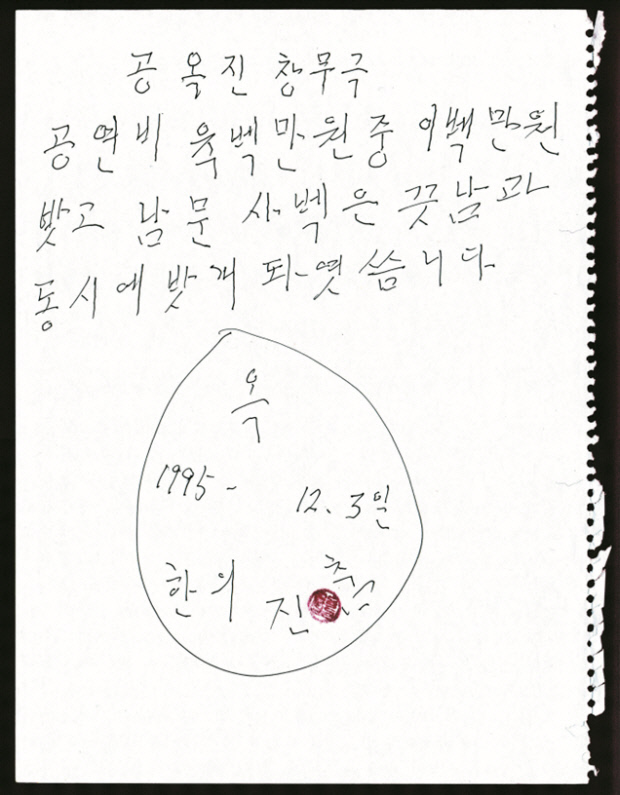 공옥진 창무극
공연비 육벡만원중 이벡만원
밧고 남문 사벡은 끗남과
동시에 밧게 되엿씀니다
옥
1995-
12. 3일
한의
진